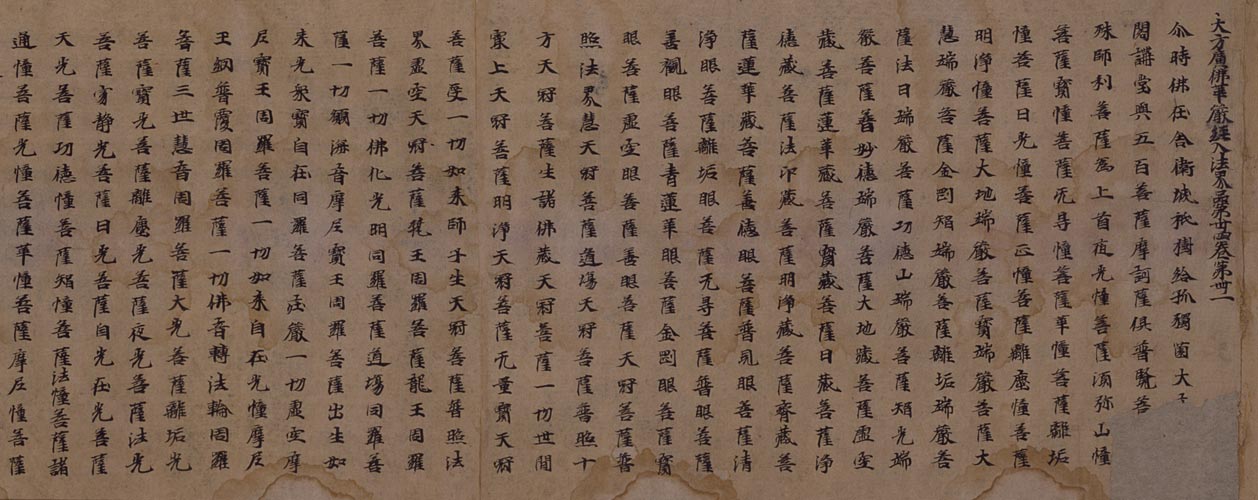 大方廣佛華嚴經入法界品第卅四卷第卌一
尒時佛在舍衛城祇樹給孤獨園大
閣講堂與五百菩薩摩訶薩俱普賢菩
殊師利菩薩為上首夜光幢菩薩須弥山幢
菩薩寶幢菩薩无㝵幢菩薩華幢菩薩離垢
幢菩薩日光幢菩薩正幢菩薩離塵幢菩薩
明淨幢菩薩大地端嚴菩薩寶端嚴菩薩大
慧端嚴菩薩金剛智端嚴菩薩離垢端嚴菩
薩法日端嚴菩薩功德山端嚴菩薩智光端
嚴菩薩普妙德端嚴菩薩大地藏菩薩虛空
藏菩薩蓮華藏菩薩寶藏菩薩日藏菩薩淨
德藏菩薩法印藏菩薩明淨藏菩薩齊藏菩
薩蓮華藏菩薩善德眼菩薩普見眼菩薩清
淨眼菩薩離垢眼菩薩无㝵菩薩普眼菩薩
善觀眼菩薩青蓮華眼菩薩金剛眼菩薩寶
眼菩薩虛空眼菩薩善眼菩薩天冠菩薩普
照法界慧天冠菩薩道場天冠菩薩普照十
方天冠菩薩生諸佛藏天冠菩薩一切世間
最上天冠菩薩明淨天冠菩薩无量寶天冠
菩薩受一切如來師子坐天冠菩薩普照法
界虛空天冠菩薩梵王周羅菩薩龍王周羅
菩薩一切佛化光明周羅菩薩道場周羅菩
薩一切願海音摩尼寶王周羅菩薩出生如
來光衆寶自在周羅菩薩莊嚴一切虛空摩
尼寶王周羅菩薩一切如來自在光幢摩尼
王網普覆周羅菩薩一切佛音轉法輪周羅
菩薩三世慧音周羅菩薩大光菩薩離垢光
菩薩寶光菩薩離塵光菩薩夜光菩薩法光
菩薩寂靜光菩薩日光菩薩自光在光菩薩
天光菩薩功德幢菩薩智幢菩薩法幢菩薩諸
通幢菩薩光幢菩薩華幢菩薩摩尼幢菩薩